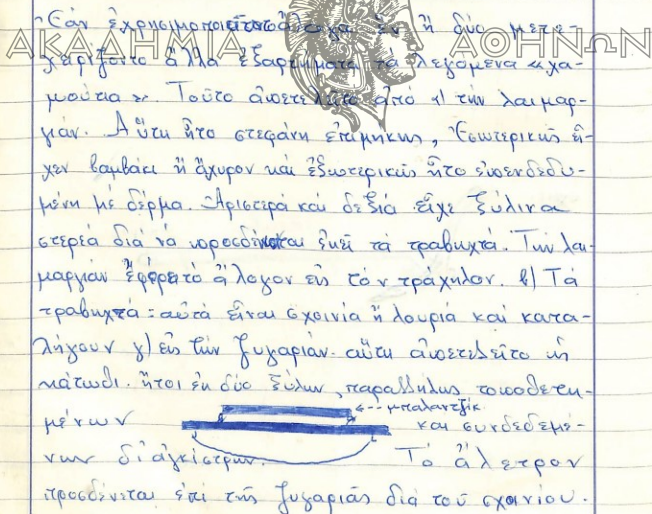 Ἐὰν ἐχρησιμοποιεῖτο ἄλογα ἓν ἢ δύο μετε-
ΑΚΑΔΗΜΙΑ ΑΘΗΝΩΝ
χειρίζοντο ἄλλα ἐξαρτήματα τὰ λεγόμενα «χα-
μούτια». Τοῦτο ἀπετελεῖτο ἀπὸ α) τὴν λαιμαρ-
γιάν. Αὕτη ἦτο στεφάνη ἐπιμήκης, Ἐσωτερικῶς εἶ-
χεν βαμβάκι ἢ ἄχυρον καὶ ἐξωτερικῶς ἦτο ἐπενδεδυ-
μένη μὲ δέρμα. Ἀριστερὰ καὶ δεξιὰ εἶχε ξύλινα
στερεὰ διὰ νὰ προσδένωνται ἐκεῖ τὰ τραβηχτά. Τὴν λαι-
μαργιὰν ἔφερε τὸ ἄλογον εἰς τὸν τράχηλον. β) Τὰ
τραβηχτά: αὐτὰ εἶναι σχοινιὰ ἢ λουριὰ καὶ κατα-
λήγουν γ) εἰς τὴν ζυγαριάν. αὕτη ἀπετελεῖτο ὡς
κάτωθι. ἤτοι ἐκ δύο ξύλων, παραλλήλως τοποθετη-
μένων <-- μπαλαντζίκ. καὶ συνδεδεμέ-
νων δι' ἀγκίστρων. Τὸ ἄλετρον
προσδένεται ἐπὶ τῆς ζυγαριᾶς διὰ τοῦ σχοινίου.